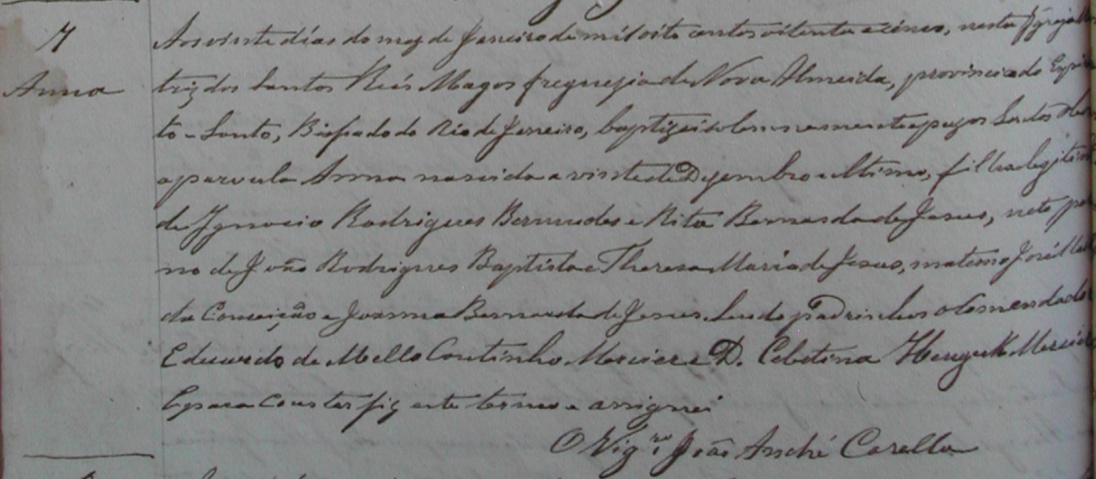 7
Anna
Aos vinte dias do mez de Janeiro de mil oito centos oitenta e cinco, nesta Igreja Ma
triz dos Santos Reis Magos freguezia de Nova Almeida, provincia do Espi
to-Santo, Bispado do Rio de Janeiro, baptizei solemnemente e puz os Santos Oleos
a parvula Anna nascida a vinte de Dezembro ultimo, filha legitima
de Ignacio Rodrigues Bermudes e Rita Bernarda de Jesus, neta pater
no de João Rodrigues Baptista e Theresa Maria de Jesus, materno José
da Conceição e Joanna Bernarda de Jesus. Sendo padrinhos o Comendador
Eduardo de Mello Coutinho Mercier e D. Celestina Mercier
E para constar fiz este termo e assignei
O Vigr.º João André Casella